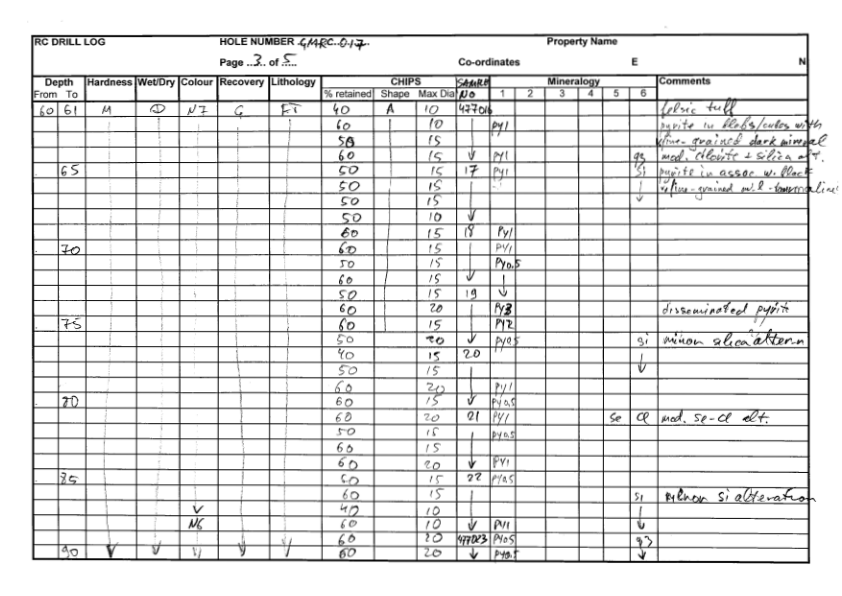 RC DRILL LOG HOLE NUMBER GMRC.017 Property Name
Page ..3.. of 5... Co-ordinates E N
Depth Hardness Wet/Dry Colour Recovery Lithology CHIPS SAMPLE Mineralogy Comments
From To % retained Shape Max Dia No 1 2 3 4 5 6
60 61 M D N7 G FT 40 A 10 477016 felsic tuff
60 10 PY1 pyrite in blebs/cubes with
50 15 fine-grained dark mineral
60 15 PY1 q3 mod. chlorite + silica alt.
65 50 15 17 PY1 Si pyrite in assoc. w. black
50 15 v.fine-grained
50 15
50 10
60 15 18 PY1
70 60 15 PY1
50 15 PY0.5
60 15
50 15 19
60 20 PY3 disseminated pyrite
75 60 15 PY2
50 20 PY0.5 si minor silica altern
40 15 20
50 15
60 20 PY1
80 60 15 PY0.5
60 20 21 PY1 se cl mod. se-cl alt.
50 15 PY0.5
60 15
60 20 PY1
85 60 15 22 PY0.5
60 15 si minor si alteration
40 10
N6 60 10 PY1
60 20 477023 PY0.5 q3
90 60 20 PY0.5